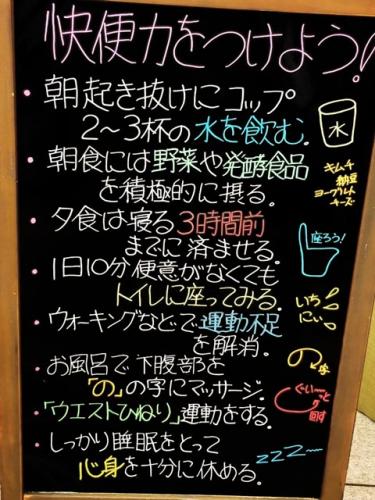 快便力をつけよう!
・朝起き抜けにコップ
2～3杯の水を飲む。
水
・朝食には野菜や発酵食品
を積極的に摂る。
キムチ
納豆
ヨーグルト
チーズ
・夕食は寝る3時間前
までに済ませる。
・1日10分便意がなくても
トイレに座ってみる。
座ろう!
・ウォーキングなどで運動不足
を解消。
いち
にぃ
・お風呂で下腹部を
「の」の字にマッサージ。
の
・「ウエストひねり」運動をする。
・しっかり睡眠をとって
心身を十分に休める。
zzz〜